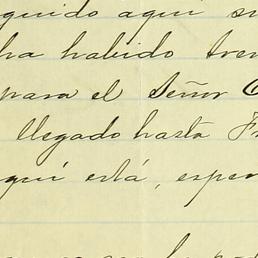 guido aquí su
ha habido tren
para el Señor C
llegado hasta Fr
quí está, esper